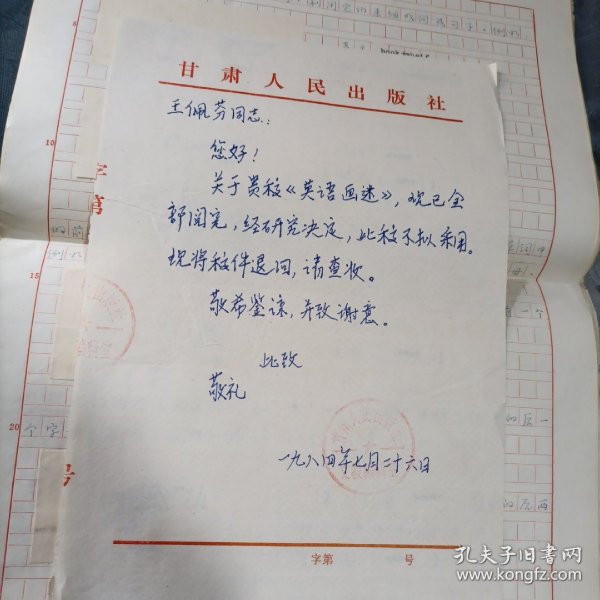 甘肃人民出版社
王佩芬同志：
您好！
关于贵稿《英语画迷》，现已全
部阅完，经研究决定，此稿不拟采用。
现将稿件退回，请查收。
敬希鉴谅，并致谢意。
此致
敬礼
一九八四年七月二十六日
字第 号
10
15
20
第
号
个字
孔夫子旧书网
www.kongfz.com